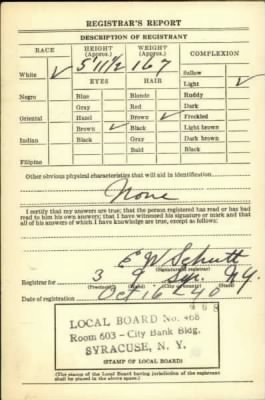 REGISTRAR'S REPORT
DESCRIPTION OF REGISTRANT
RACE HEIGHT (Approx.) WEIGHT (Approx.) COMPLEXION
5' 11 1/2 167
Sallow
White ✓ EYES HAIR Light ✓
Negro Blue Blonde Ruddy
Gray Red Dark
Oriental Hazel Brown ✓ Freckled
Brown ✓ Black Light brown
Indian Black Gray Dark brown
Bald Black
Filipino
Other obvious physical characteristics that will aid in identification
None
I certify that my answers are true; that the person registered has read or has had
read to him his own answers; that I have witnessed his signature or mark and that
all of his answers of which I have knowledge are true, except as follows:
E W Schutt
(Signature of registrar)
Registrar for 3 9 Syr. N.Y.
(Precinct) (Ward) (City or county) (State)
Date of registration Oct 16 - 40
LOCAL BOARD No. 468
Room 603 - City Bank Bldg.
SYRACUSE, N. Y.
(STAMP OF LOCAL BOARD)
(The stamp of the Local Board having jurisdiction of the registrant
shall be placed in the above space.)